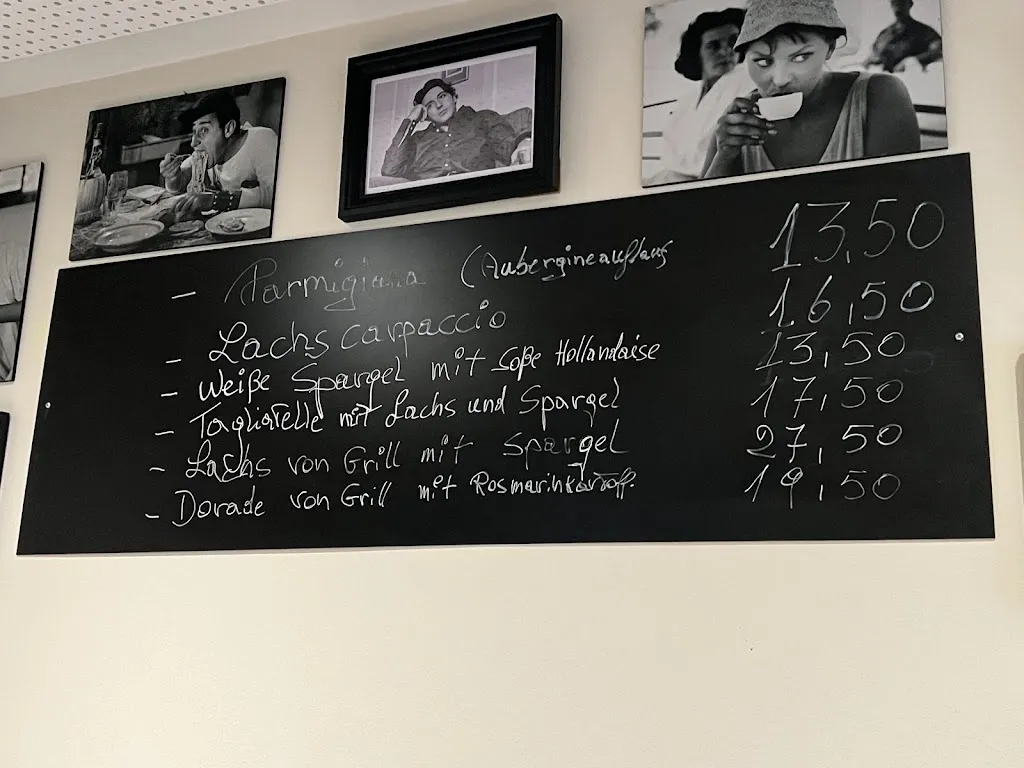 - Parmigiana (Aubergineauflauf 13,50
- Lachscarpaccio 16,50
- Weiße Spargel mit Soße Hollandaise 13,50
- Tagliatelle mit Lachs und Spargel 17,50
- Lachs von Grill mit Spargel 27,50
- Dorade von Grill mit Rosmarinkartoff. 19,50